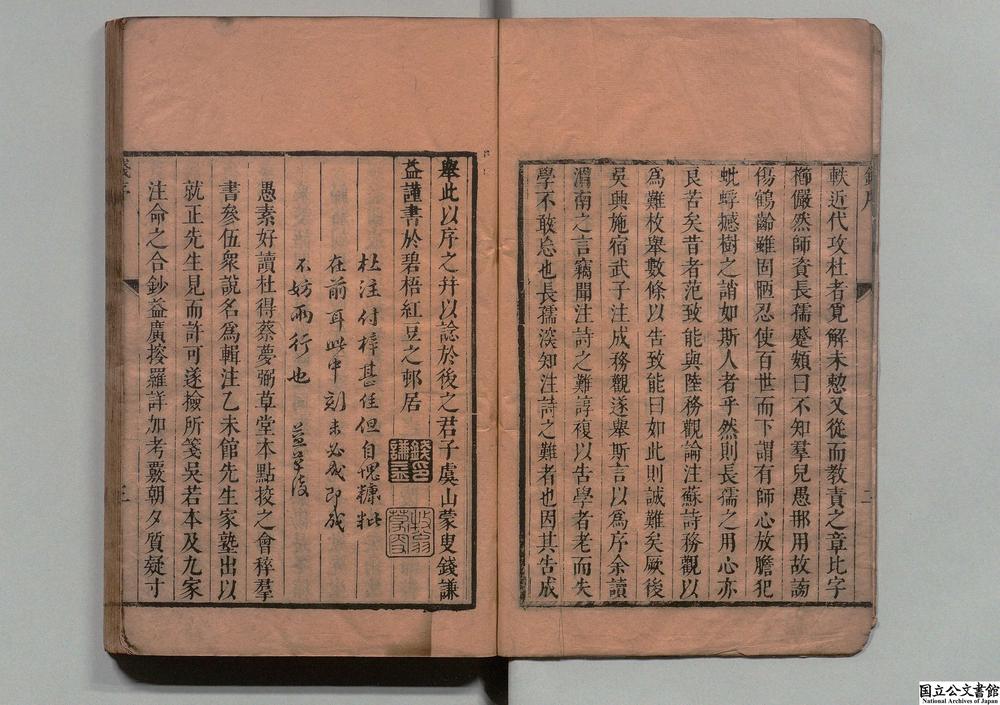 錢序
二
軼近代攻杜者覓解未愸又從而教責之章比字
櫛儼然師資長孺蹙頞曰不知羣兒愚那用故謗
傷鶴齡雖固陋忍使百世而下謂有師心放膽犯
蚍蜉撼樹之誚如斯人者乎然則長孺之用心亦
良苦矣昔者范致能與陸務觀論注蘇詩務觀以
為難枚舉數條以告致能曰如此則誠難矣厥後
吳興施宿武子注成務觀遂舉斯言以為序余讀
渭南之言竊聞注詩之難諄複以告學者老而失
學不敢忘也長孺深知注詩之難者也因其告成
舉此以序之幷以諗於後之君子虞山蒙叟錢謙
益謹書於碧梧紅豆之邨居
錢印謙益
牧翁蒙叟
杜注付梓甚佳但自愧糠粃
在前耳此中刻未必成即成
不妨兩行也 益草復
愚素好讀杜得蔡夢弼草堂本點挍之會稡羣
書參伍衆說名為輯注乙未館先生家塾出以
就正先生見而許可遂撿所箋吳若本及九家
注命之合鈔益廣搜羅詳加考覈朝夕質疑寸
錢序
三
国立公文書館
National Archives of Japan